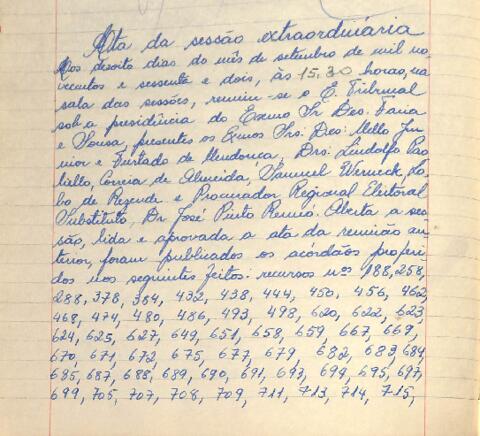 Ata da sessão extraordinária
Aos dezoito dias do mês de setembro de mil no
vecentos e sessenta e dois, às 15,30 horas, na
sala das sessões, reuniu-se o E. Tribunal
sob a presidência do Exmo Sr Des: Faria
e Sousa, presentes os Exmos Srs: Des: Mello Jun
nior e Furtado de Mendonça, Drs: Lindolfo Pao
liello, Correia de Almeida, Samuel Werneck, Lo
bo de Resende e Procurador Regional Eleitoral
Substituto, Dr José Pinto Renó. Aberta a ses
são, lida e aprovada a ata da reunião an
terior, foram publicados os acórdãos proferi
dos nos seguintes feitos: recursos nºs 188, 258,
288, 378, 384, 432, 438, 444, 450, 456, 462,
468, 474, 480, 486, 493, 498, 620, 622, 623
624, 625, 627, 649, 651, 658, 659, 667, 669,
670, 671, 672, 675, 677, 679, 682, 683, 684,
685, 687, 688, 689, 690, 691, 693, 694, 695, 697,
699, 705, 707, 708, 709, 711, 713, 714, 715,